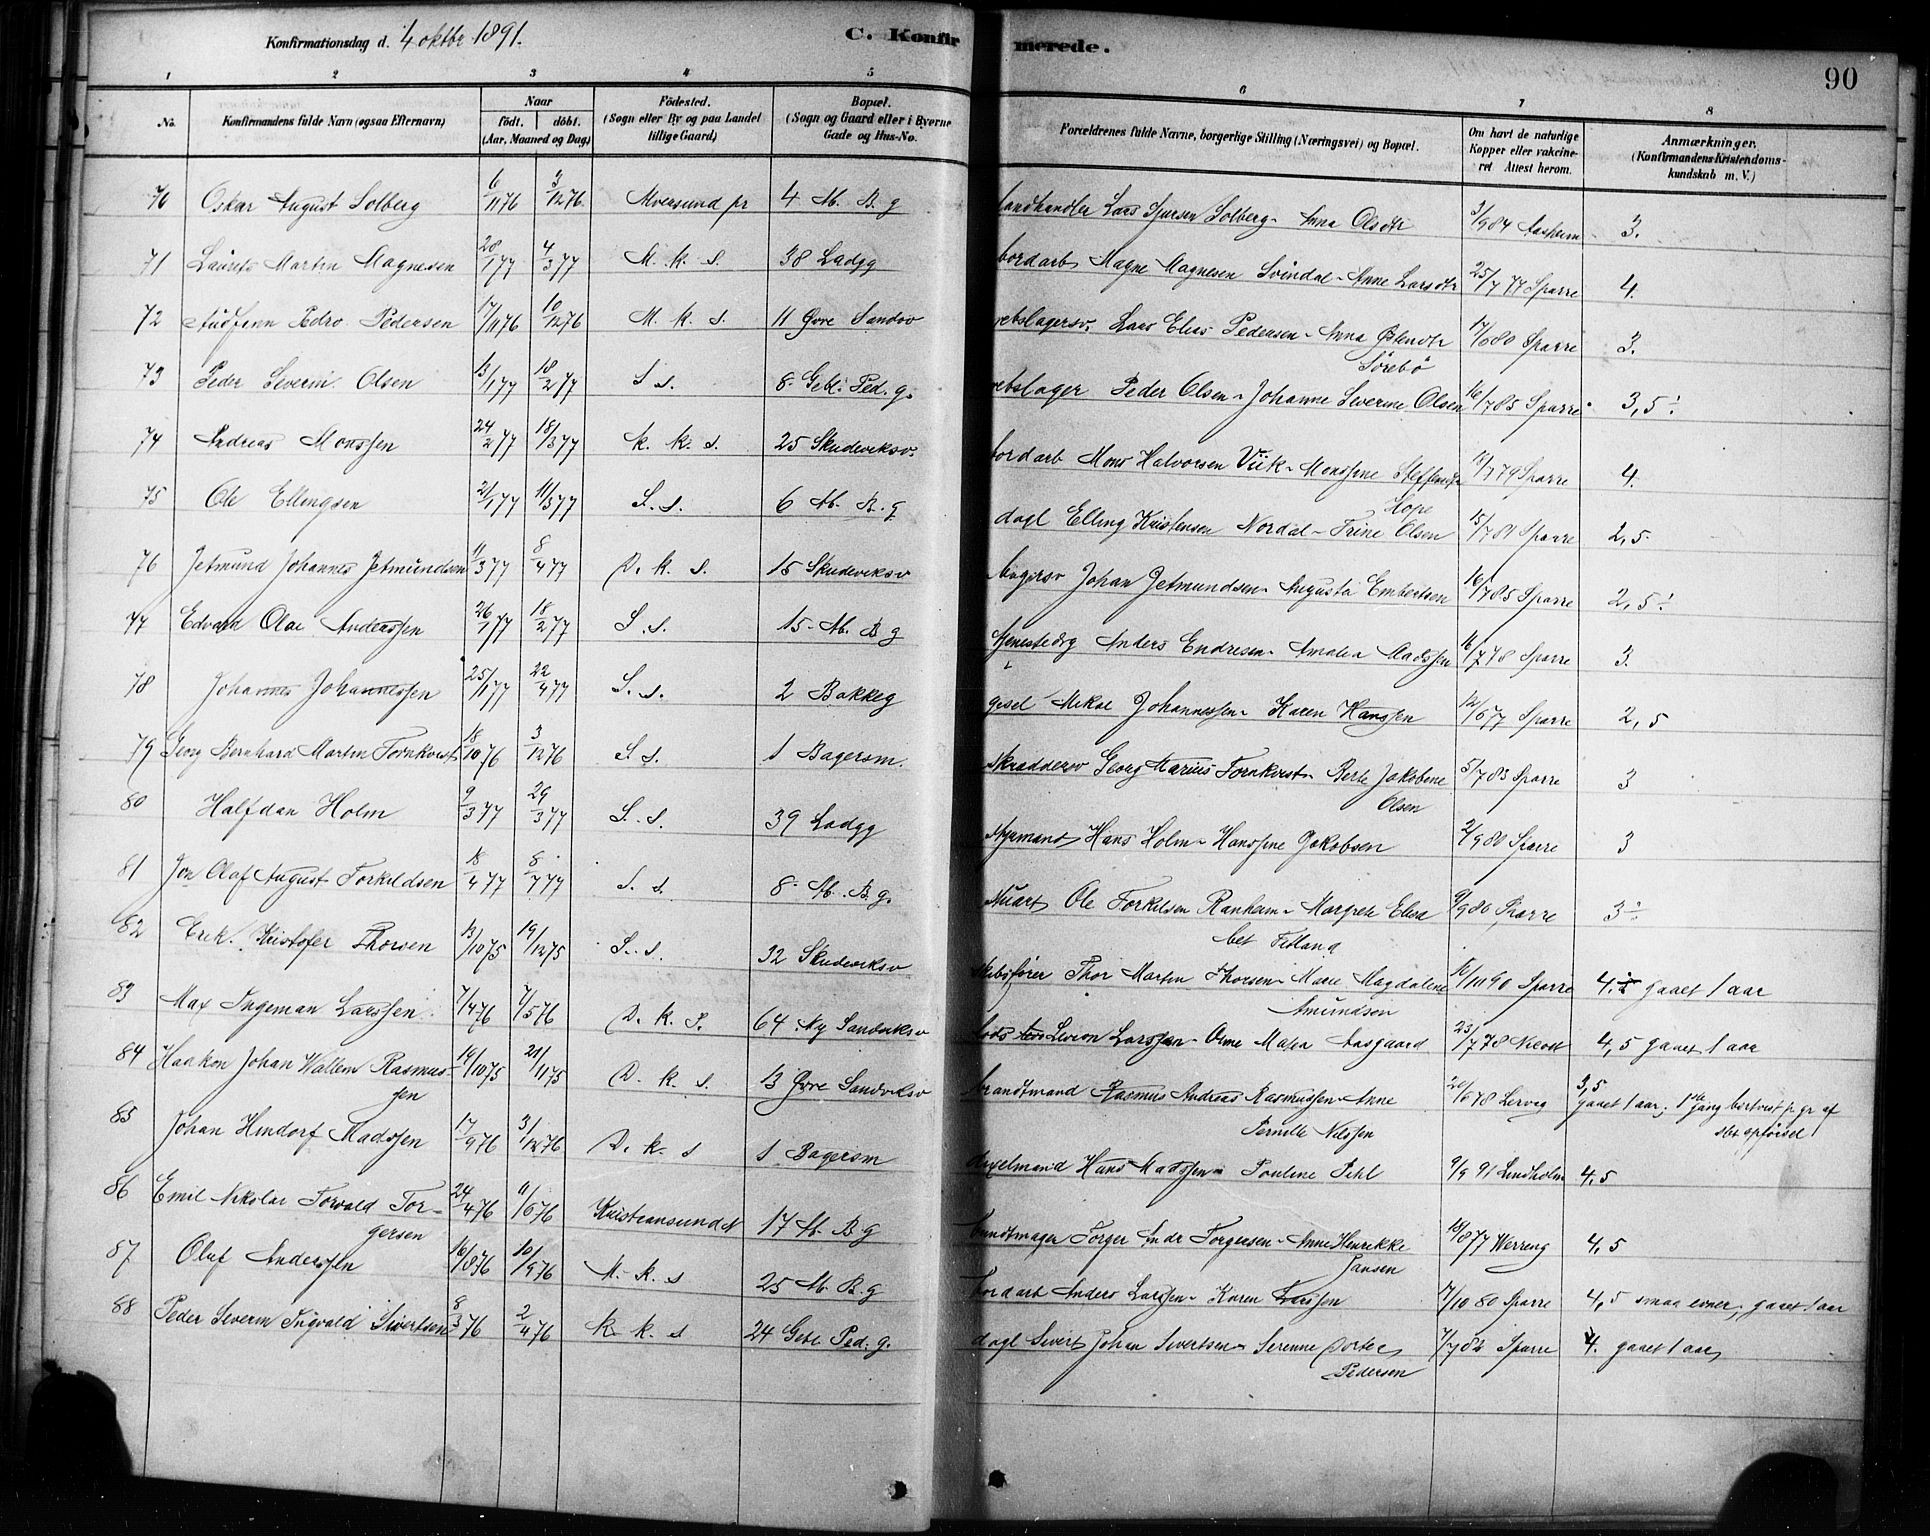 Konfirmationsdag d. 4 oktbr 1891.
C. Konfirmerede.
90
1 2 3 4 5 6 7 8
No.
Konfirmandens fulde Navn (ogsaa Efternavn)
Naar
födt. döbt.
(Aar, Maaned og Dag)
Födested.
(Sogn eller By og paa Landet tillige Gaard)
Bopæl.
(Sogn og Gaard eller i Byerne Gade og Hus-No.
Forældrenes fulde Navne, borgerlige Stilling (Næringsvei) og Bopæl.
Om havt de naturlige Kopper eller vakcineret Attest herom.
Anmærkninger.
(Konfirmandens Kristendomskundskab m. V.)
70 Oskar August Solberg 6/11 76 3/12 76 4 M. B. g Landhandler Lars Solberg - Anna Olsdtr 3/9 84 Aasheim 3.
71 Laurits Martin Magnesen 28/1 77 4/3 77 M. k. s. 38 Ladgg bordarb Magne Magnesen Svindal - Anne Larsdtr 25/7 77 Sparre 4.
72 Audfinn Pedro Pedersen 17/11 76 10/12 76 M. k. s. 11 Øvre Sandvv Lars Elias Pedersen - Anna Sørebø 17/6 80 Sparre 3.
73 Peder Severin Olsen 13/1 77 18/2 77 S s. 8 Gebl. Ped. g. rebslager Peder Olsen - Johanne Severine Olsen 16/7 85 Sparre 3,5
74 Andreas Monssen 24/2 77 18/3 77 K. k. s. 25 Skudeviksv. bordarb Mons Halvorsen Viik - Monssine Hope 4.
75 Ole Ellingsen 21/1 77 11/3 77 S. s. 6 M. B. g dagl Elling Kristensen Nordal - Trine Olsen 15/7 81 Sparre 2,5
76 Jetmund Johannes Jetmundsen 11/3 77 8/4 77 D. k. s. 15 Skudeviksv Johan Jetmundsen - Augusta Embertsen 16/7 85 Sparre 2,5
77 Edvard Olai Anderssen 26/1 77 18/2 77 S. s. 15 M. B g Anders Endresen - Amalia Madssen 16/7 78 Sparre 3.
78 Johannes Johannessen 25/1 77 22/4 77 S. s. 2 Bakkeg Mikal Johannessen - Karen Hanssen 12/6 77 Sparre 2,5
79 Georg Bernhard Martin Tornkvist 18/10 76 3/12 76 S s. 1 Bagersm. Skrædderv Georg Marius Tornkvist - Berte Jakobine Olsen 5/7 83 Sparre 3
80 Halfdan Holm 9/3 77 29/3 77 S. s. 39 Ladgg Myrmand Hans Holm - Hanssine Jakobsen 2/9 80 Sparre 3
81 Jon Olaf August Torkildsen 18/4 77 8/7 77 S. s. 8 M. B. g. Ole Torkilsen Ranheim - Margrete Elisabet Fitland 9/9 80 Sparre 3
82 Erik Kristofer Thorsen 13/10 75 19/12 75 S. s. 32 Skudeviksv skibsfører Thor Martin Thorsen - Marie Magdalene Amundsen 10 90 Sparre 4. gaaet 1 aar
83 Max Ingeman Larssen 7/4 76 7/5 76 D. k. S. 64 Ny Sandviksv Lods Sevrin Larssen - Oline Maria Aasgaard 23/7 78 4,5 gaaet 1 aar
84 Haakon Johan Wallem Rasmussen 19/10 75 21/11 75 D. k. s. 13 Øvre Sandviksv brandtmand Rasmus Andreas Rasmussen - Anne Pernille Nilssen 20/6 78 Lerveg 3,5 gaaet 1 aar; 1ste gang bortvist p. gr af slet opførsel
85 Johan Hindorf Madssen 17/9 76 31/12 76 D. k. s 1 Bagersm Hans Madssen - Pauline Pihl 9/9 91 Lindholm 4,5
86 Emil Nikolai Torvald Torgersen 24/4 76 11/6 76 Kristiansund N 17 M. B g buntmager Torger Andr Torgersen - Anne Henrikke Jansen 10/8 77 Werring 4,5
87 Oluf Anderssen 16/8 76 10/9 76 M. k. s 25 M. B. g bordarb Anders Larssen - Karen Larssen 7/10 80 Sparre 4,5 smaa evner, gaaet 1 aar
88 Peder Severin Ingvald Sivertsen 8/3 76 2/4 76 K. k. s 24 Gebl Ped. g. dagl Sivert Johan Sivertsen - Serenne Dortea Pedersen 7/7 82 Sparre 4. gaaet 1 aar